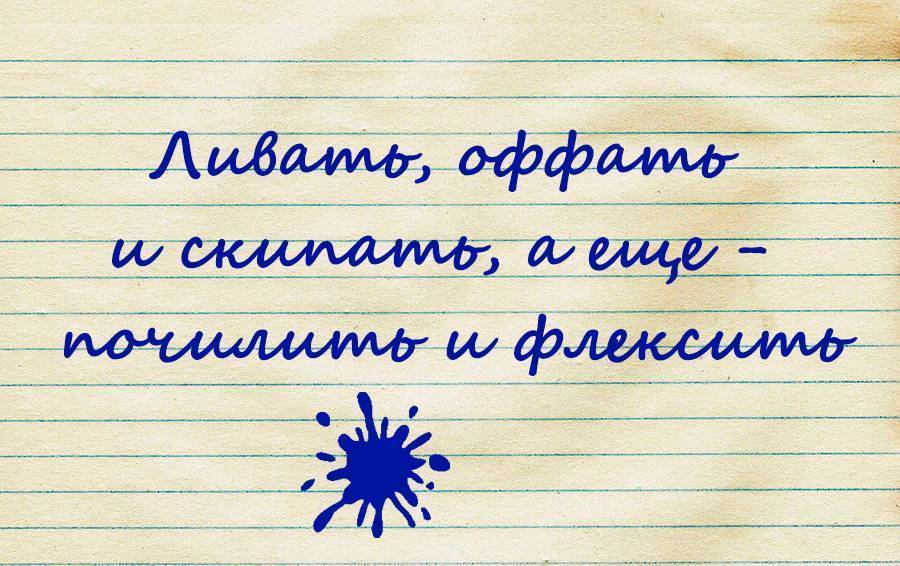 Ливать, оффать
и скипать, а еще -
почилить и флексить